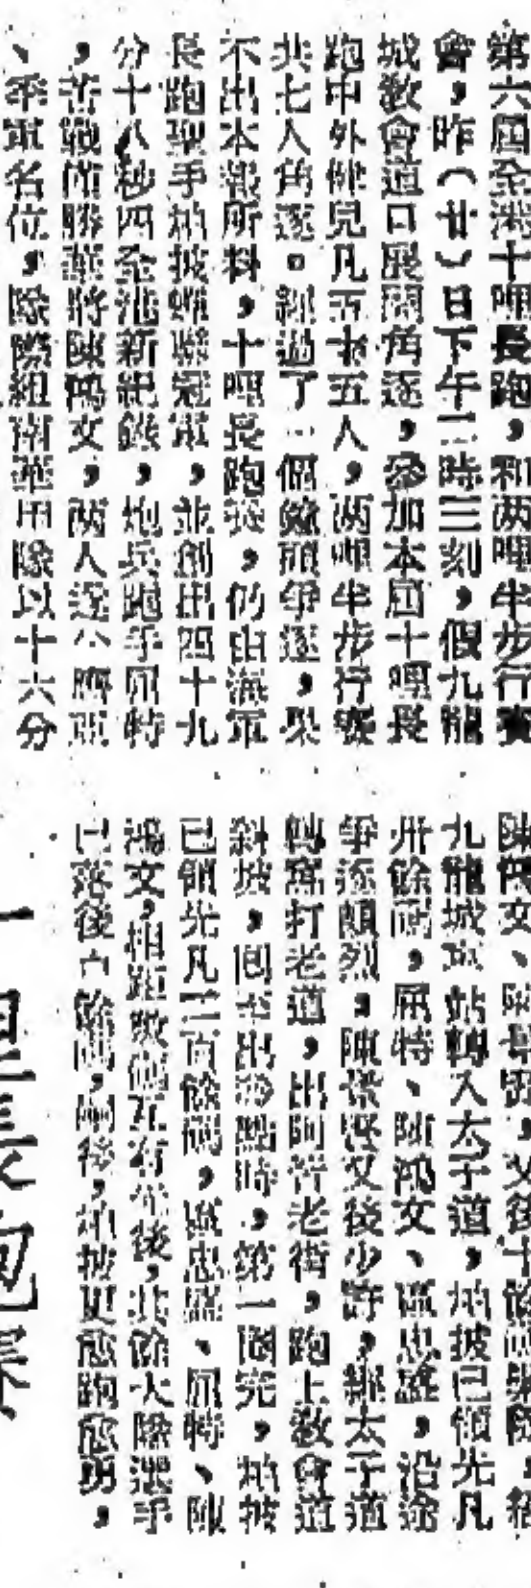 第六屆全港十哩長跑，和兩哩半步行賽
會，昨（廿）日下午二時三刻，假九龍
城敎會道口展開角逐，參加本屆十哩長
跑中外健兒凡五十五人，兩哩半步行賽
共七人角逐。經過了一個餘頭爭逐，果
不出本報所料，十哩長跑賽，仍由海軍
長跑聖手柏披蟬聯冠軍，並創出四十九
分十八秒四全港新紀錄，炮兵跑手屈特
，苦戰南華將陳鴻文，兩人遂分膺亞
、季軍名位，隊際組南華田隊以十六分
陳鴻文、陳 ，又後十餘
九龍城 站轉入太子道，柏披已領光凡
卅餘碼，屈特、陳鴻文、區忠 ，沿途
爭逐頗烈，陳 又後少許，繞太子道
轉窩打老道，出阿皆老街，跑上敎會道
斜坡，回 出發點時，第一圈完，柏披
已領先凡二百餘碼，區忠 、屈特、陳
鴻文，相距數碼互有先後，其餘大隊選手
已落後六 餘碼，嗣後，柏披更愈跑愈勇，
哩長跑賽